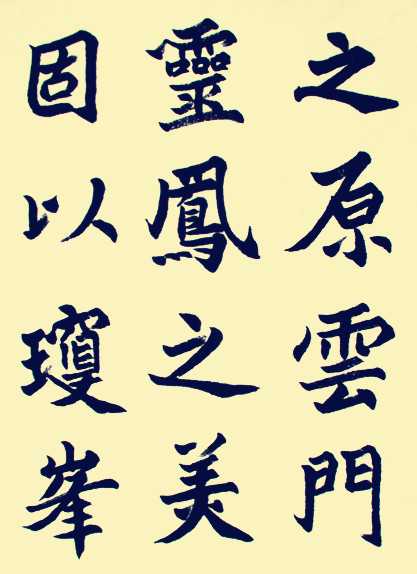 之原雲門
靈鳳之美
固以瓊峯